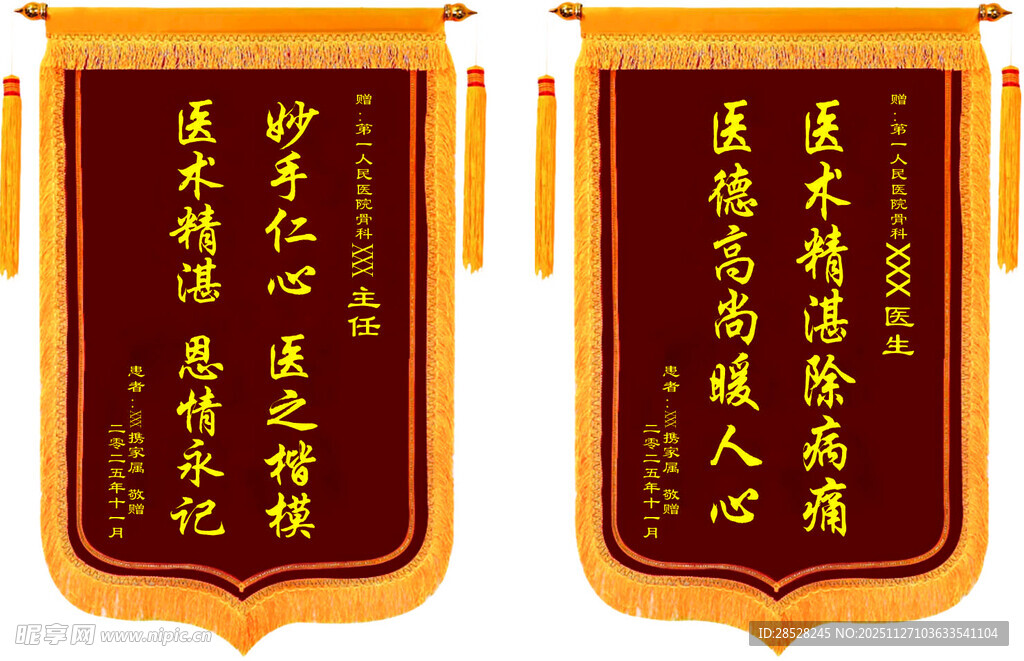 赠：第一人民医院骨科XXX主任
妙手仁心 医之楷模
医术精湛 恩情永记
患者：XXX携家属 敬赠
二零二五年十一月
赠：第一人民医院骨科XXX医生
医术精湛除病痛
医德高尚暖人心
患者：XXX携家属 敬赠
二零二五年十一月
昵享网 www.nipic.cn
ID:28528245 NO:20251127103633541104